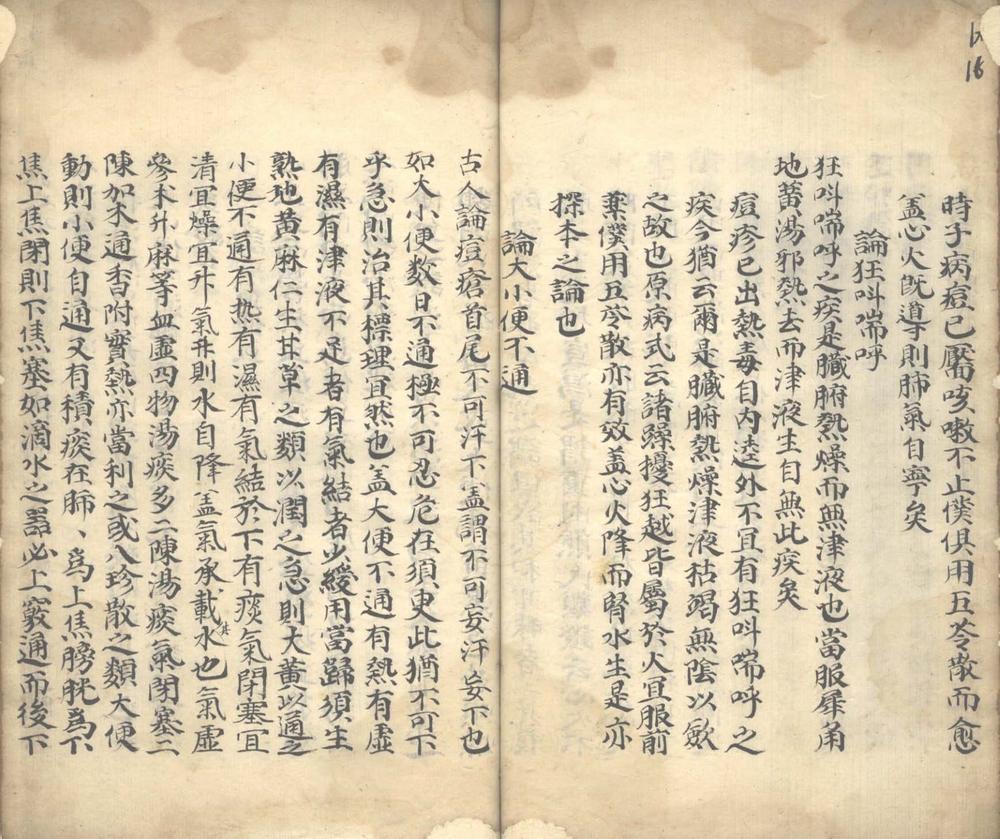 16
時子病痘已靨咳嗽不止僕俱用五苓散而愈
盖心火既導則肺氣自寧矣
論狂叫喘呼
狂叫喘呼之疾是臟腑熱燥而無津液也當服犀角
地黃湯邪熱去而津液生自無此疾矣
痘疹已出熱毒自內達外不宜有狂叫喘呼之
疾今猶云爾是臟腑熱燥津液枯竭無陰以歛
之故也原病式云諸躁擾狂越皆屬於火宜服前
藥僕用五苓散亦有效盖心火降而腎水生是亦
探本之論也
論大小便不通
古人論痘瘡首尾不可汗下盖謂不可妄汗妄下也
如大小便數日不通極不可忍危在須臾此猶不可下
乎急則治其標理宜然也盖大便不通有熱有虛
有濕有津液不足者有氣結者少緩用當歸須生
熟地黃麻仁生甘草之類以潤之急則大黃以通之
小便不通有热有濕有氣結於下有痰氣閉塞宜
清宜燥宜升氣升則水自降盖氣承載其水也氣虛
參术升麻等血虛四物湯痰多二陳湯痰氣閉塞二
陳加木通香附實熱亦當利之或八珍散之類大便
動則小便自通又有積痰在肺、爲上焦膀胱爲下
焦上焦閉則下焦塞如滴水之器必上竅通而後下